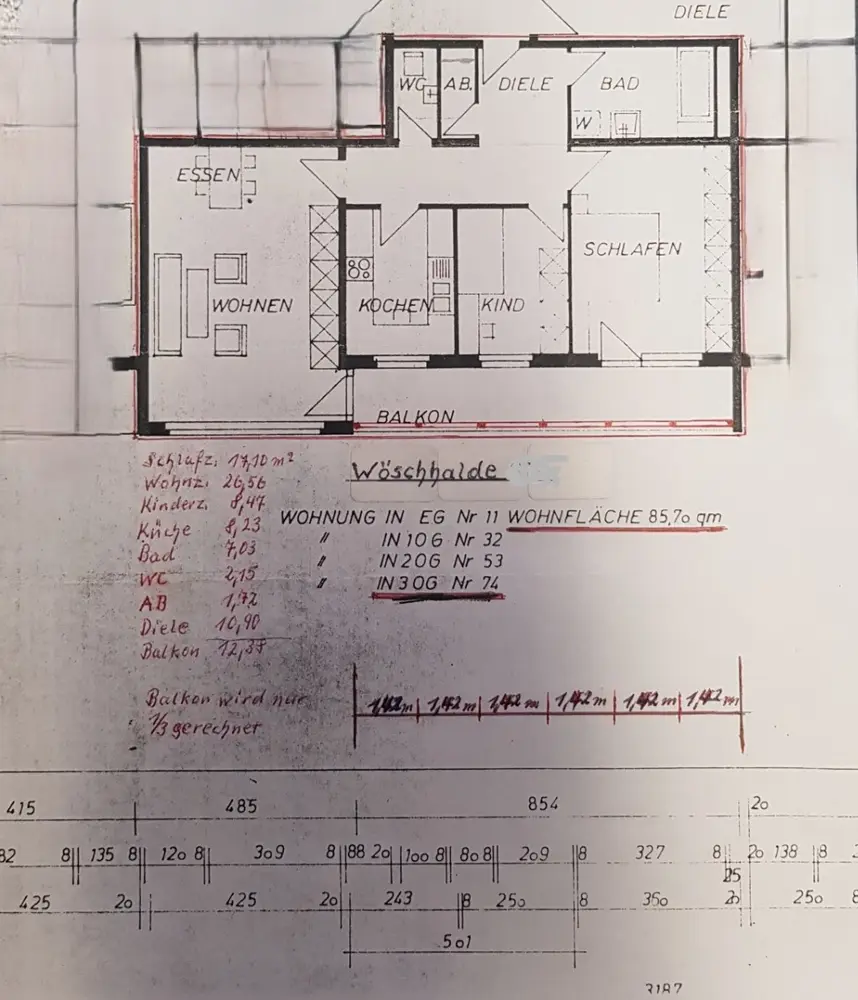 DIELE
WC AB. DIELE BAD
W
ESSEN
SCHLAFEN
WOHNEN KOCHEN KIND
BALKON
Schlafz. 17,10 m²
Wohnz. 26,56
Kinderz. 8,47
Küche 8,23
Bad 7,03
WC 2,15
AB 1,72
Diele 10,90
Balkon 12,38
Wöschhalde
WOHNUNG IN EG Nr 11 WOHNFLÄCHE 85,70 qm
" IN 1 O G Nr 32
" IN 2 O G Nr 53
" IN 3 O G Nr 74
Balkon wird nur
1/3 gerechnet
1,42 m 1,42 m 1,42 m 1,42 m 1,42 m 1,42 m
415 485 854 20
82 8 135 8 120 8 309 8 88 20 100 8 80 8 209 8 327 8 20 138 8
25
425 20 425 20 243 8 250 8 350 20 250 8
501
3187